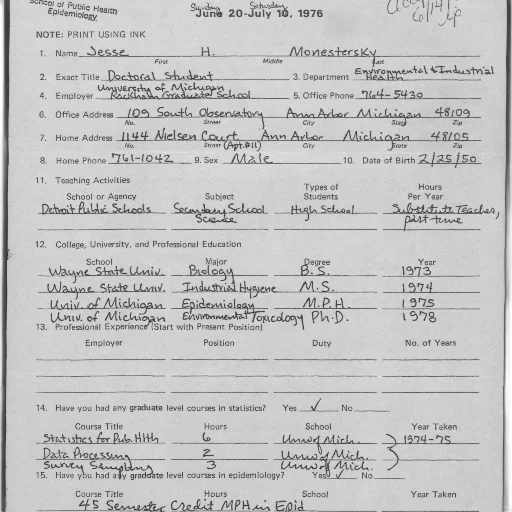 School of Public Health
Epidemiology
Sunday Saturday
June 20-July 10, 1976
NOTE: PRINT USING INK
1. Name Jesse H. Monestersky
First Middle Last
2. Exact Title Doctoral Student 3. Department Environmental & Industrial Health
4. Employer University of Michigan Rackham Graduate School 5. Office Phone 764-5430
6. Office Address 109 South Observatory Ann Arbor Michigan 48109
No. Street City State Zip
7. Home Address 1144 Nielsen Court Ann Arbor Michigan 48105
No. Street (Apt.#11) City State Zip
8. Home Phone 761-1042 9. Sex Male 10. Date of Birth 2/25/50
11. Teaching Activities
School or Agency Subject Types of Students Hours Per Year
Detroit Public Schools Secondary School Science High School Substitute Teacher, part time
12. College, University, and Professional Education
School Major Degree Year
Wayne State Univ. Biology B.S. 1973
Wayne State Univ. Industrial Hygiene M.S. 1974
Univ. of Michigan Epidemiology M.P.H. 1975
Univ. of Michigan Environmental Toxicology Ph.D. 1978
13. Professional Experience (Start with Present Position)
Employer Position Duty No. of Years
14. Have you had any graduate level courses in statistics? Yes ✓ No
Course Title Hours School Year Taken
Statistics for Pub. Hlth 6 Univ of Mich. } 1974-75
Data Processing 2 Univ of Mich.
Survey Sampling 3 Univ of Mich.
15. Have you had any graduate level courses in epidemiology? Yes ✓ No
Course Title Hours School Year Taken
45 Semester Credit MPH in Epid